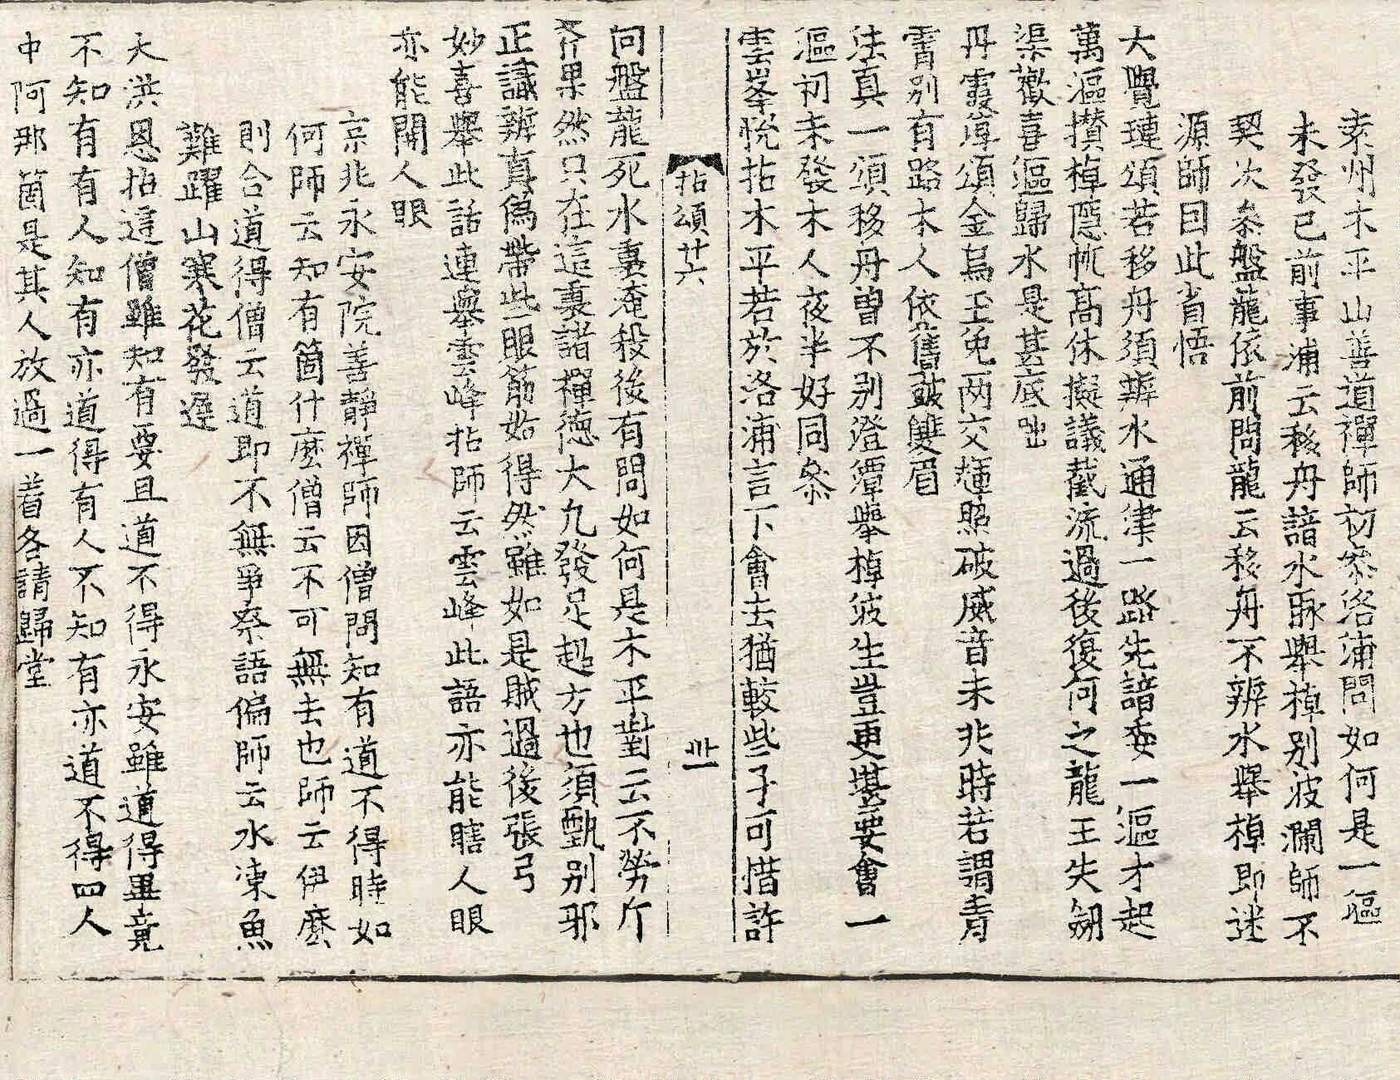 袁州木平山善道禪師初叅洛浦問如何是一漚
未發已前事浦云移舟諳水脉舉棹别波瀾師不
契次叅盤龍依前問龍云移舟不辨水舉棹即迷
源師曰此省悟
大覺璉頌若移舟須辨水通津一路先諳委一漚才起
萬漚攅棹隱帆髙休擬議截流過後復何之龍王失𠛬
渠歡喜漚歸水是甚底咄
丹霞淳頌金烏玉兎兩交輝照破威音未兆時若謂青
霄别有路木人依舊皷雙眉
法真一頌移舟曽不别澄潭舉棹波生豈更堪要會一
漚初未發木人夜半好同叅
雲峯恱拈木平若於洛浦言下會去猶較些子可惜許
拈頌廿六
卅一
向盤龍死水裏淹殺後有問如何是木平對云不勞斤
斧果然只在這裏諸禪德大凡發足超方也須甄别邪
正識辨真偽帶些眼筋始得然雖如是賊過後張弓
妙喜舉此話連舉雲峰拈師云雲峰此語亦能瞎人眼
亦能開人眼
京兆永安院善靜禪師因僧問知有道不得時如
何師云知有箇什麽僧云不可無去也師云伊麽
則合道得僧云道即不無爭柰語偏師云水凍魚
難躍山寒花發遲
大洪恩拈這僧雖知有要且道不得永安雖道得畢竟
不知有有人知有亦道得有人不知有亦道不得四人
中阿那箇是其人放過一著各請歸堂